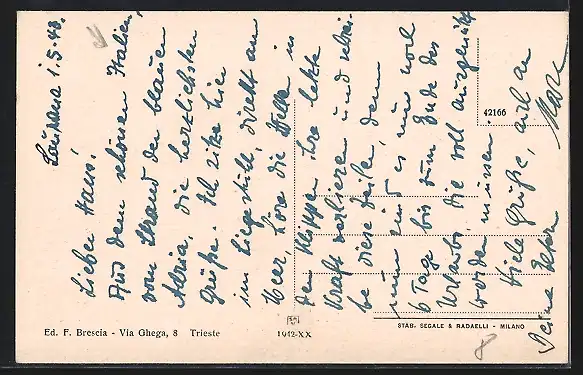 Laurana 1.5.43.
Lieber Hans!
Aus dem schönen Italien,
vom Strand der blauen
Adria, die herzlichsten
Grüße. Ich sitze hier
im Liegestuhl, direkt am
Meer, höre die Welle in
den Klippen ihre letzte
Kraft verlieren und schrei-
be diese Zeilen, denn
nun sind es nur noch
6 Tage bis zum Ende des
Urlaubs, die voll ausgenützt
werden müssen.
Viele Grüße, auch an
Deine
42166
Ed. F. Brescia - Via Ghega, 8 Trieste
1942-XX
STAB. SEGALE & RADAELLI - MILANO
8